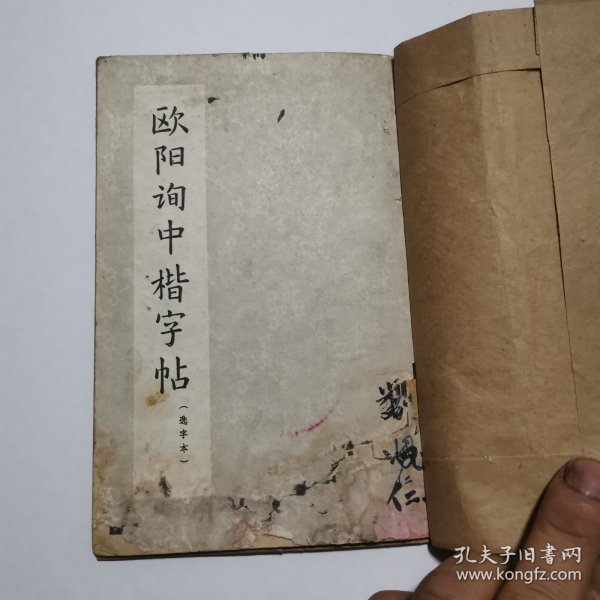 欧阳询中楷字帖
（选字本）
仁
孔夫子旧书网
www.kongfz.com